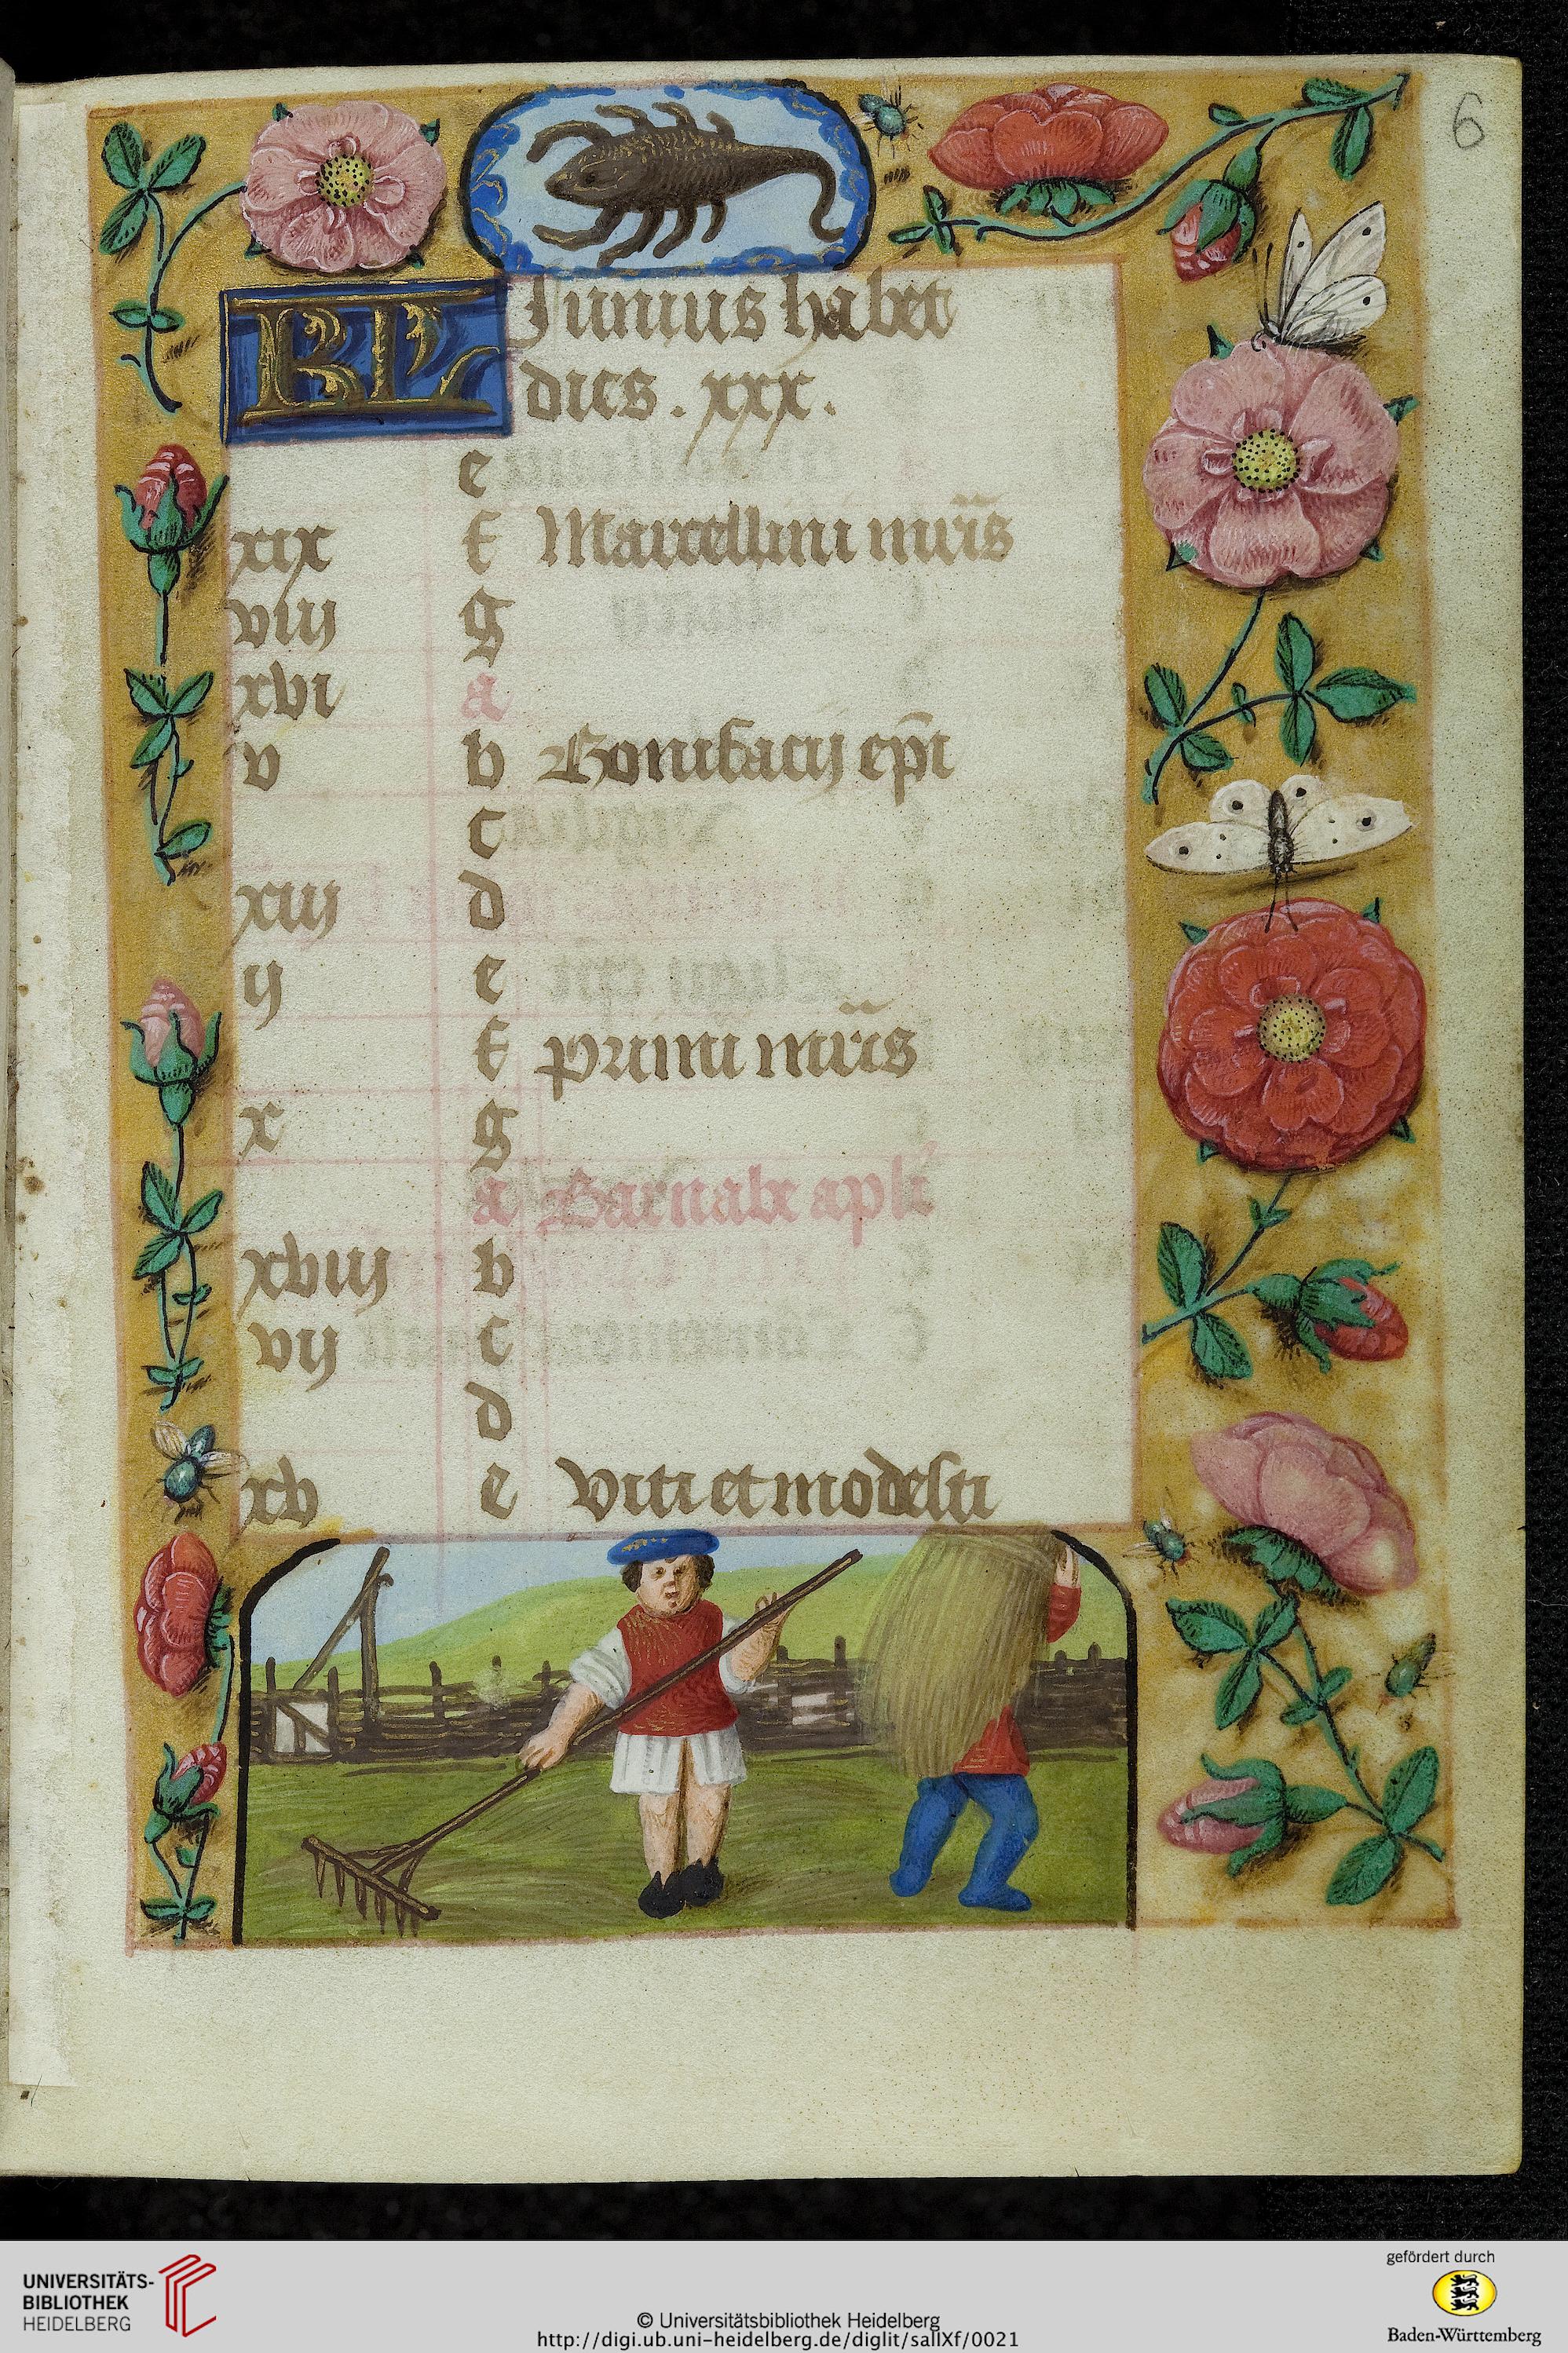 6
KL Junius habet
dies . xxx .
e
xix f Marcellini mr̄is
viij g
xvi a
v b Bonifacij ep̄i
c
xiij d
ij e
f primi mr̄is
x g
a Barnabe apli
xviij b
vij c
d
xv e Viti et modesti
UNIVERSITÄTS-
BIBLIOTHEK
HEIDELBERG
© Universitätsbibliothek Heidelberg
http://digi.ub.uni-heidelberg.de/diglit/salIXf/0021
gefördert durch
Baden-Württemberg